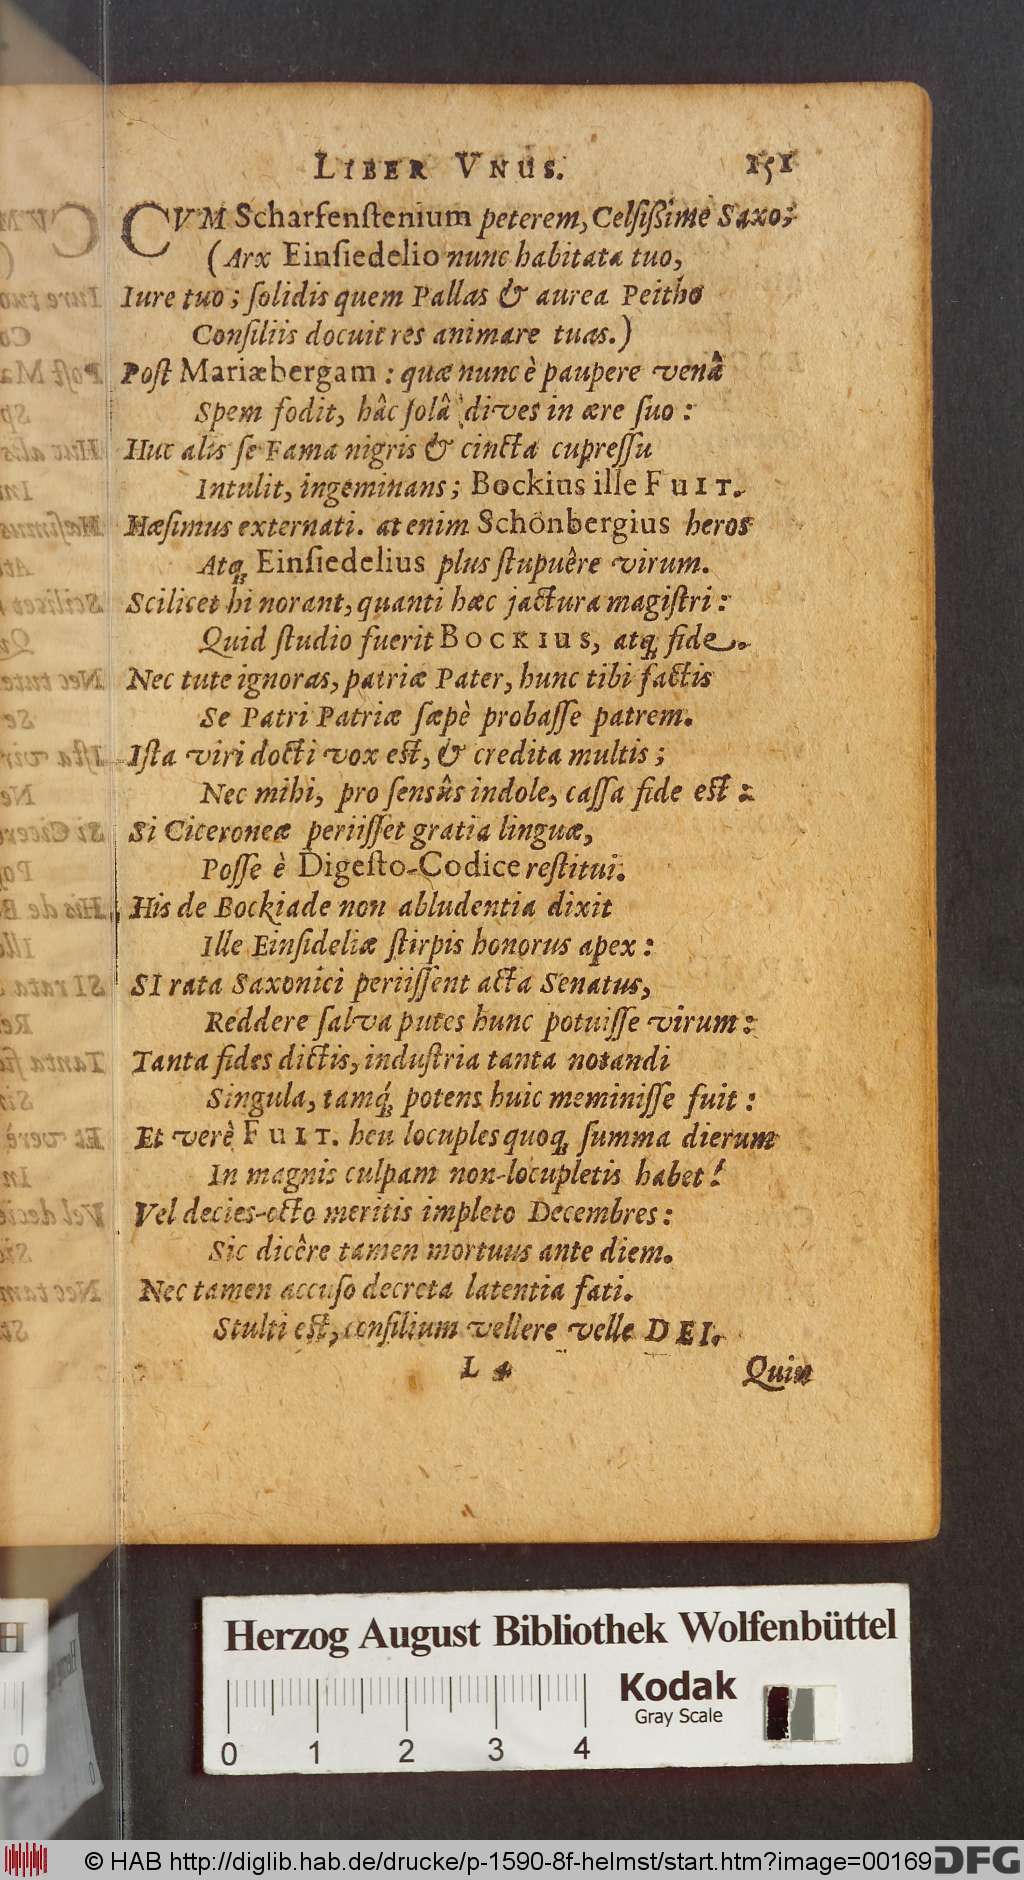 LIBER VNUS. 151
CVM Scharfenſtenium peterem, Celſißimè Saxo;
(Arx Einſiedelio nunc habitata tuo,
Iure tuo; ſolidis quem Pallas & aurea Peitho
Conſiliis docuit res animare tuas.)
Poſt Mariæbergam : quæ nunc è paupere venâ
Spem fodit, hâc ſolâ dives in ære ſuo :
Huc alis ſe Fama nigris & cincta cupreſſu
Intulit, ingeminans; Bockius ille FUIT.
Hæſimus externati. at enim Schönbergius heros
Atq́; Einſiedelius plus ſtupuêre virum.
Scilicet hi norant, quanti hæc jactura magiſtri :
Quid ſtudio fuerit BOCKIUS, atq; fide.
Nec tute ignoras, patriæ Pater, hunc tibi factis
Se Patri Patriæ ſæpè probaſſe patrem.
Iſta viri docti vox eſt, & credita multis ;
Nec mihi, pro ſensûs indole, caſſa fide eſt :
Si Ciceroneæ periiſſet gratia linguæ,
Poſſe è Digeſto-Codice reſtitui.
His de Bockiade non abludentia dixit
Ille Einſideliæ ſtirpis honorus apex :
SI rata Saxonici periiſſent acta Senatus,
Reddere ſalva putes hunc potuiſſe virum :
Tanta fides dictis, induſtria tanta notandi
Singula, tamq́; potens huic meminiſſe fuit :
Et verè FUIT. heu locuples quoq; ſumma dierum
In magnis culpam non-locupletis habet!
Vel decies-octo meritis impleto Decembres :
Sic dicêre tamen mortuus ante diem.
Nec tamen accuſo decreta latentia fati.
Stulti eſt, conſilium vellere velle DEI.
L 4 Quin
Herzog August Bibliothek Wolfenbüttel
Kodak
Gray Scale
0 1 2 3 4
© HAB http://diglib.hab.de/drucke/p-1590-8f-helmst/start.htm?image=00169
DFG